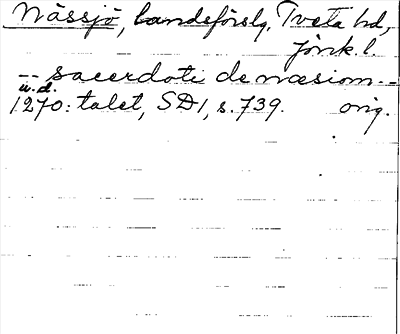 Nässjö, landsförslg, Tveta hd,
Jönk. l.
-- sacerdoti de næsiom --
u.d.
1270: talet, SD1, s. 739. orig.